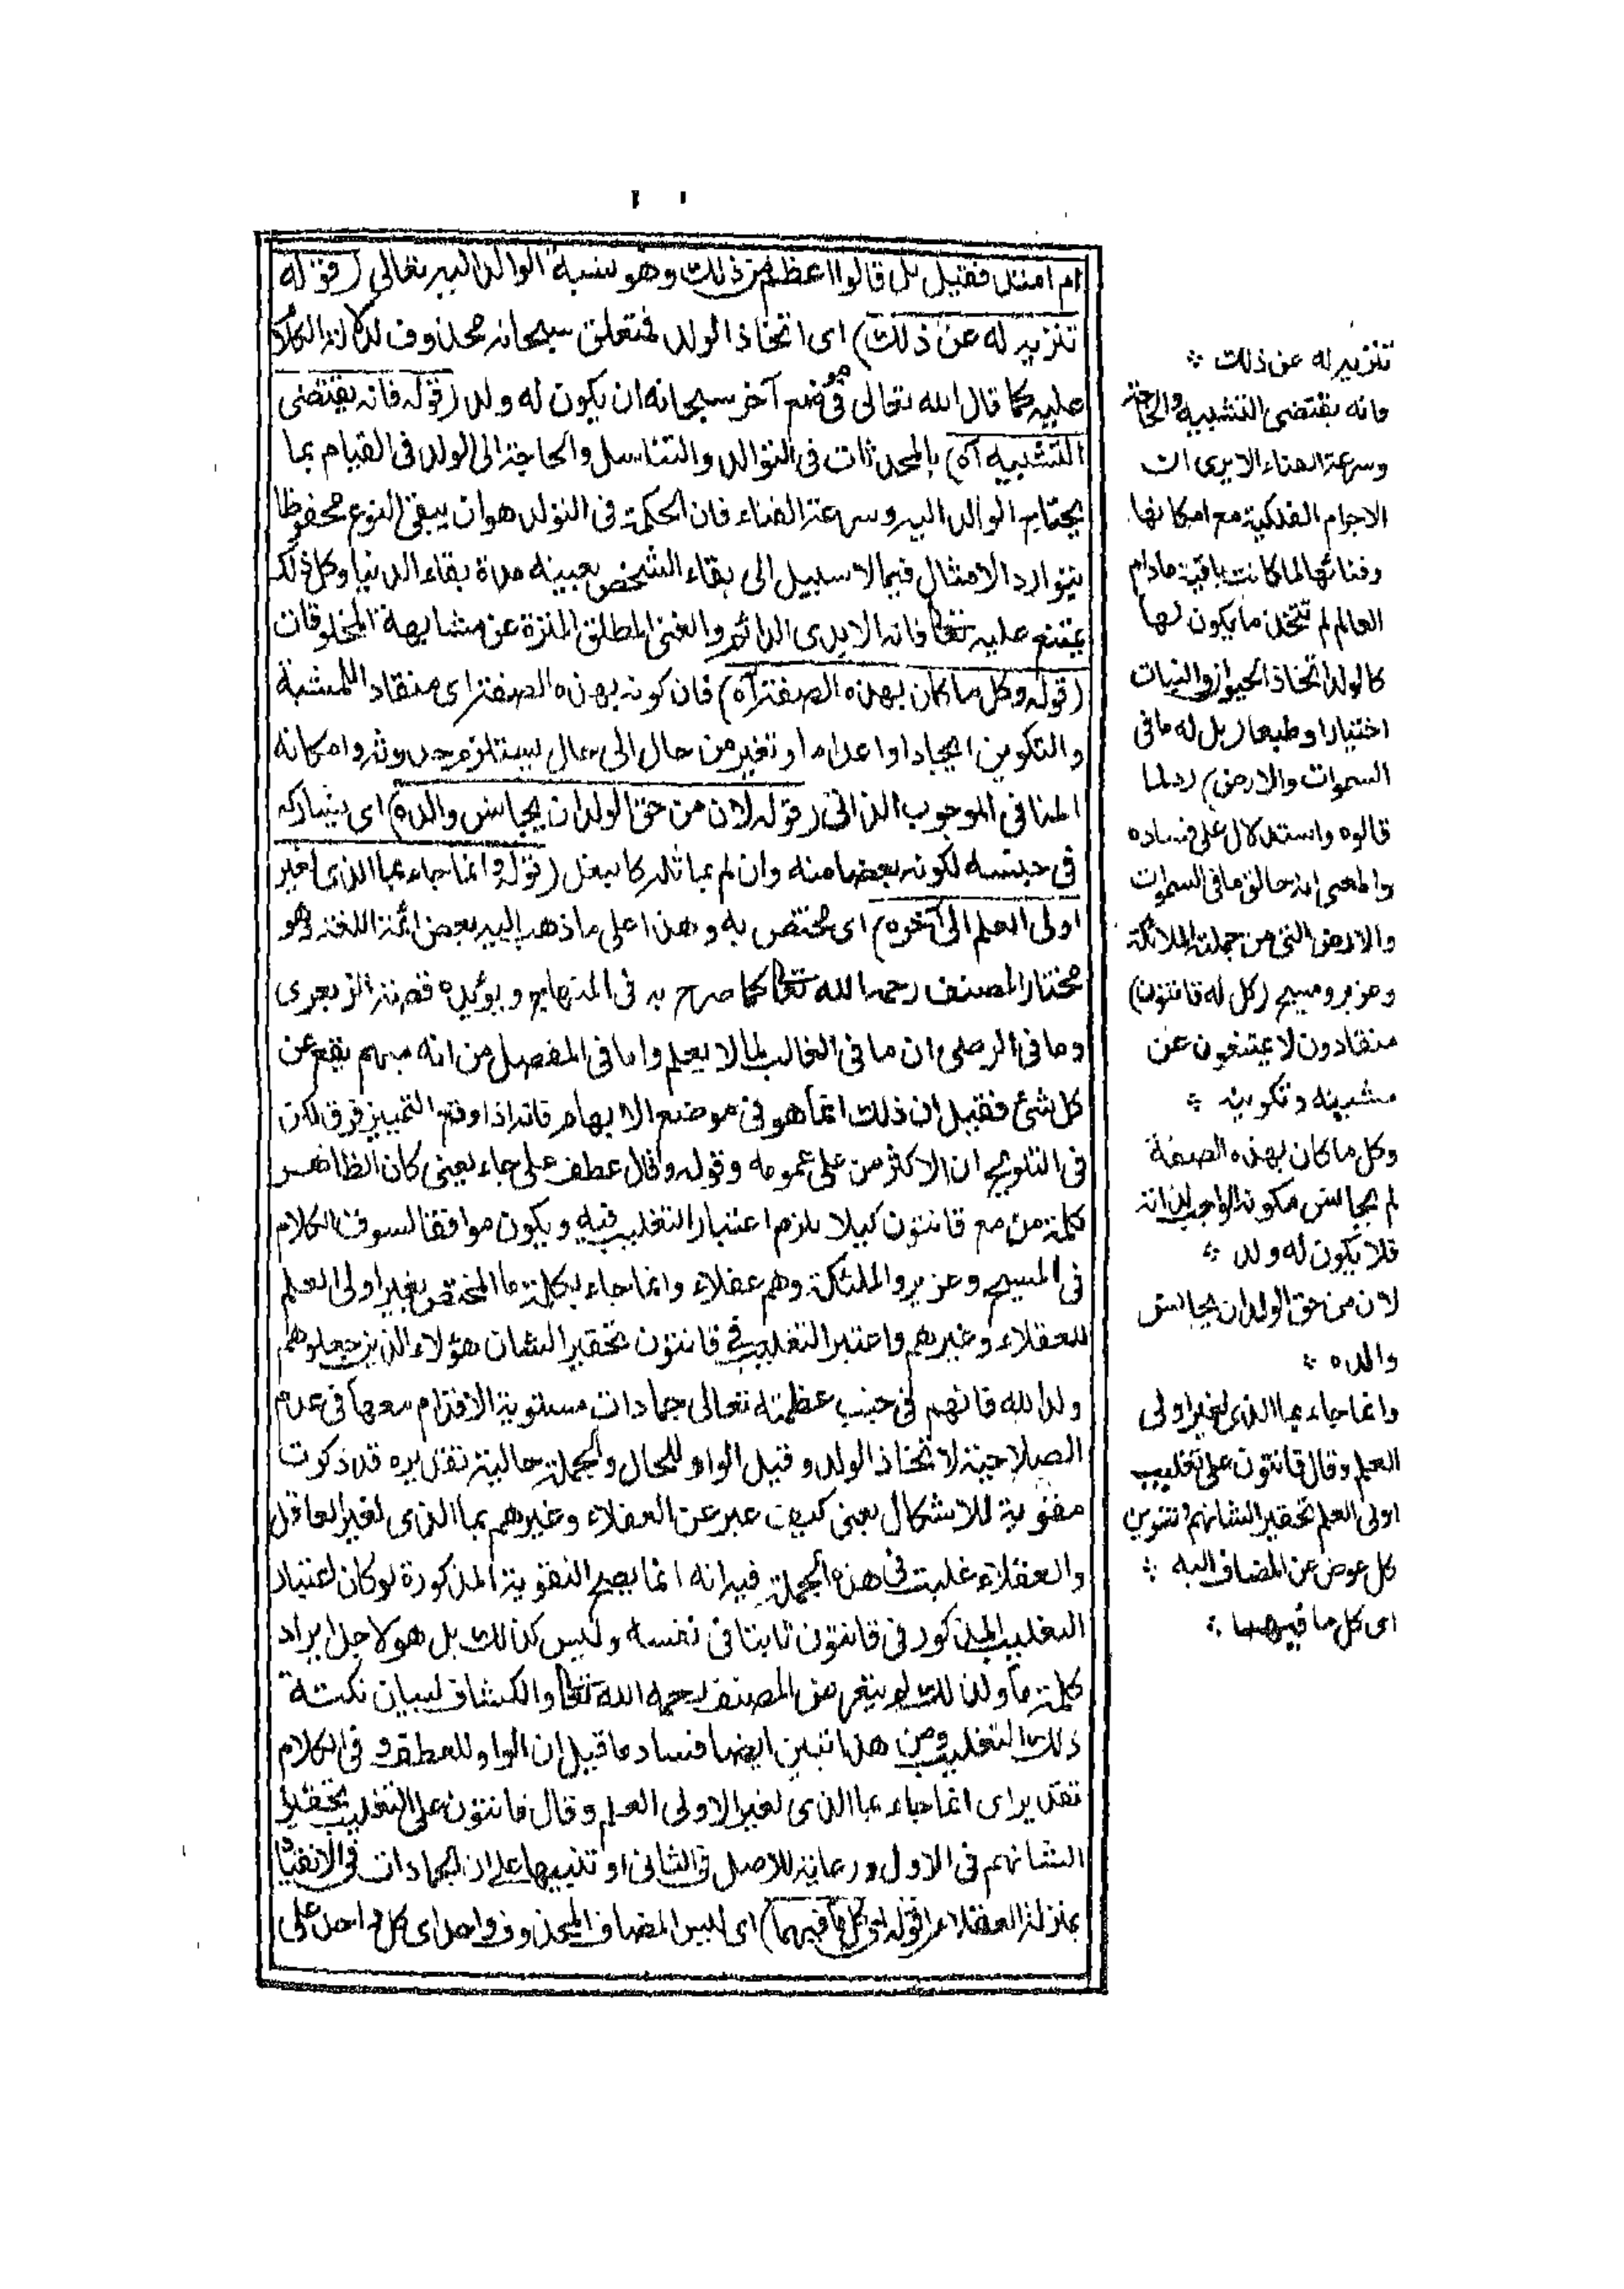 ام امتد فقيل بل قالوا اعظم من ذلك وهو نسبة الوالد اليه تعالى (قوله
تنزيه له عن ذلك) اى اتخاذ الولد فمتعلق سبحانه محذوف لدلالة الكلام
عليه كما قال الله تعالى فى موضع آخر سبحانه ان يكون له ولد (قوله فانه يقتضى
التشبيه آه) بالمحدثات فى التوالد والتناسل والحاجة الى الولد فى القيام بما
يحتاج الوالد اليه وسرعة الفناء فان الحكمة فى التولد هو ان يبقى النوع محفوظا
بتوارد الامثال فيما لا سبيل الى بقاء الشخص بعينه مدة بقاء الدنيا وكل ذلك
يمتنع عليه تعالى فانه الابدى الدائم والغنى المطلق المنزه عن مشابهة المخلوقات
(قوله وكل ما كان بهذه الصفة آه) فان كونه بهذه الصفة اى منقادا للمشية
والتكوين ايجادا واعداما وتغير من حال الى حال يستلزم حدوثه وامكانه
المنافى للوجوب الذاتى (قوله لان من حق الولد ان يجانس والده) اى يشاركه
فى جنسه لكونه بعضا منه وان لم يماثله كالبغل (قوله وانما جاء بما الذى لغير
اولى العلم الى آخره) اى مختص به وهذا على ما ذهب اليه بعض ائمة اللغة وهو
مختار المصنف رحمه الله تعالى كما صرح به فى المنهاج ويؤيده قصة الزبعرى
وما فى الرضى ان ما فى الغالب لما لا يعلم واما فى المفصل من انه مبهم يقع عن
كل شئ فقيل ان ذلك انما هو فى موضع الابهام فانه اذا وقع التمييز فرق لكن
فى التلويح ان الاكثر من على عمومه وقوله وقال عطف على جاء يعنى كان الظاهر
كلمة من مع قانتون كيلا يلزم اعتبار التغليب فيه ويكون موافقا لسوق الكلام
فى المسيح وعزير والملئكة وهم عقلاء وانما جاء بكلمة ما المختص بغير اولى العلم
للعقلاء وغيرهم واعتبر التغليب فى قانتون تحقيرا لشان هؤلاء الذين جعلوهم
ولدا لله فانهم فى جنب عظمته تعالى جمادات مستوية الاقدام معها فى عدم
الصلاحية لاتخاذ الولد وقيل الواو للحال والجملة حالية بتقدير قد ذكرت
مقوية للاشكال يعنى كيف عبر عن العقلاء وغيرهم بما الذى لغير العاقل
والعقلاء غلبت فى هذه الجملة فيه انه انما يصح التقوية المذكورة لو كان اعتبار
التغليب المذكور فى قانتون ثابتا فى نفسه وليس كذلك بل هو لاجل ايراد
كلمة ما ولذلك لم يتعرض المصنف رحمه الله تعالى والكشاف لبيان نكتة
ذلك التغليب ومن هذا تبين ايضا فساد ما قيل ان الواو للعطف وفى الكلام
تقدير اى انما جاء بما الذى لغير الاولى العلم وقال قانتون على التغليب تحقيرا
لشانهم فى الاول ورعاية للاصل فى الثانى او تنبيها على ان الجمادات فى الانقياد
بمنزلة العقلاء (قوله اى كل ما فيهما) اى ليس المضاف المحذوف واحد اى كل واحد على
تنزيه له عن ذلك
فانه يقتضى التشبيه والحاجة
وسرعة الفناء الا يرى ان
الاجرام الفلكية مع امكانها
وفنائها لما كانت باقية مادام
العالم لم تتخذ ما يكون لها
كالولد اتخاذ الحيوان والنبات
اختيارا او طبعا (بل له ما فى
السموات والارض) رد لما
قالوه واستدلال على فساده
والمعنى انه خالق ما فى السموات
والارض التى من جملته الملائكة
وعزير ومسيح (كل له قانتون)
منقادون لا يمتنعون عن
مشيته وتكوينه
وكل ما كان بهذه الصفة
لم يجانس مكونه الواجب لذاته
فلا يكون له ولد
لان من حق الولد ان يجانس
والده
وانما جاء بما الذى لغير اولى
العلم وقال قانتون على تغليب
اولى العلم تحقيرا لشانهم وتنوين
كل عوض عن المضاف اليه
اى كل ما فيهما